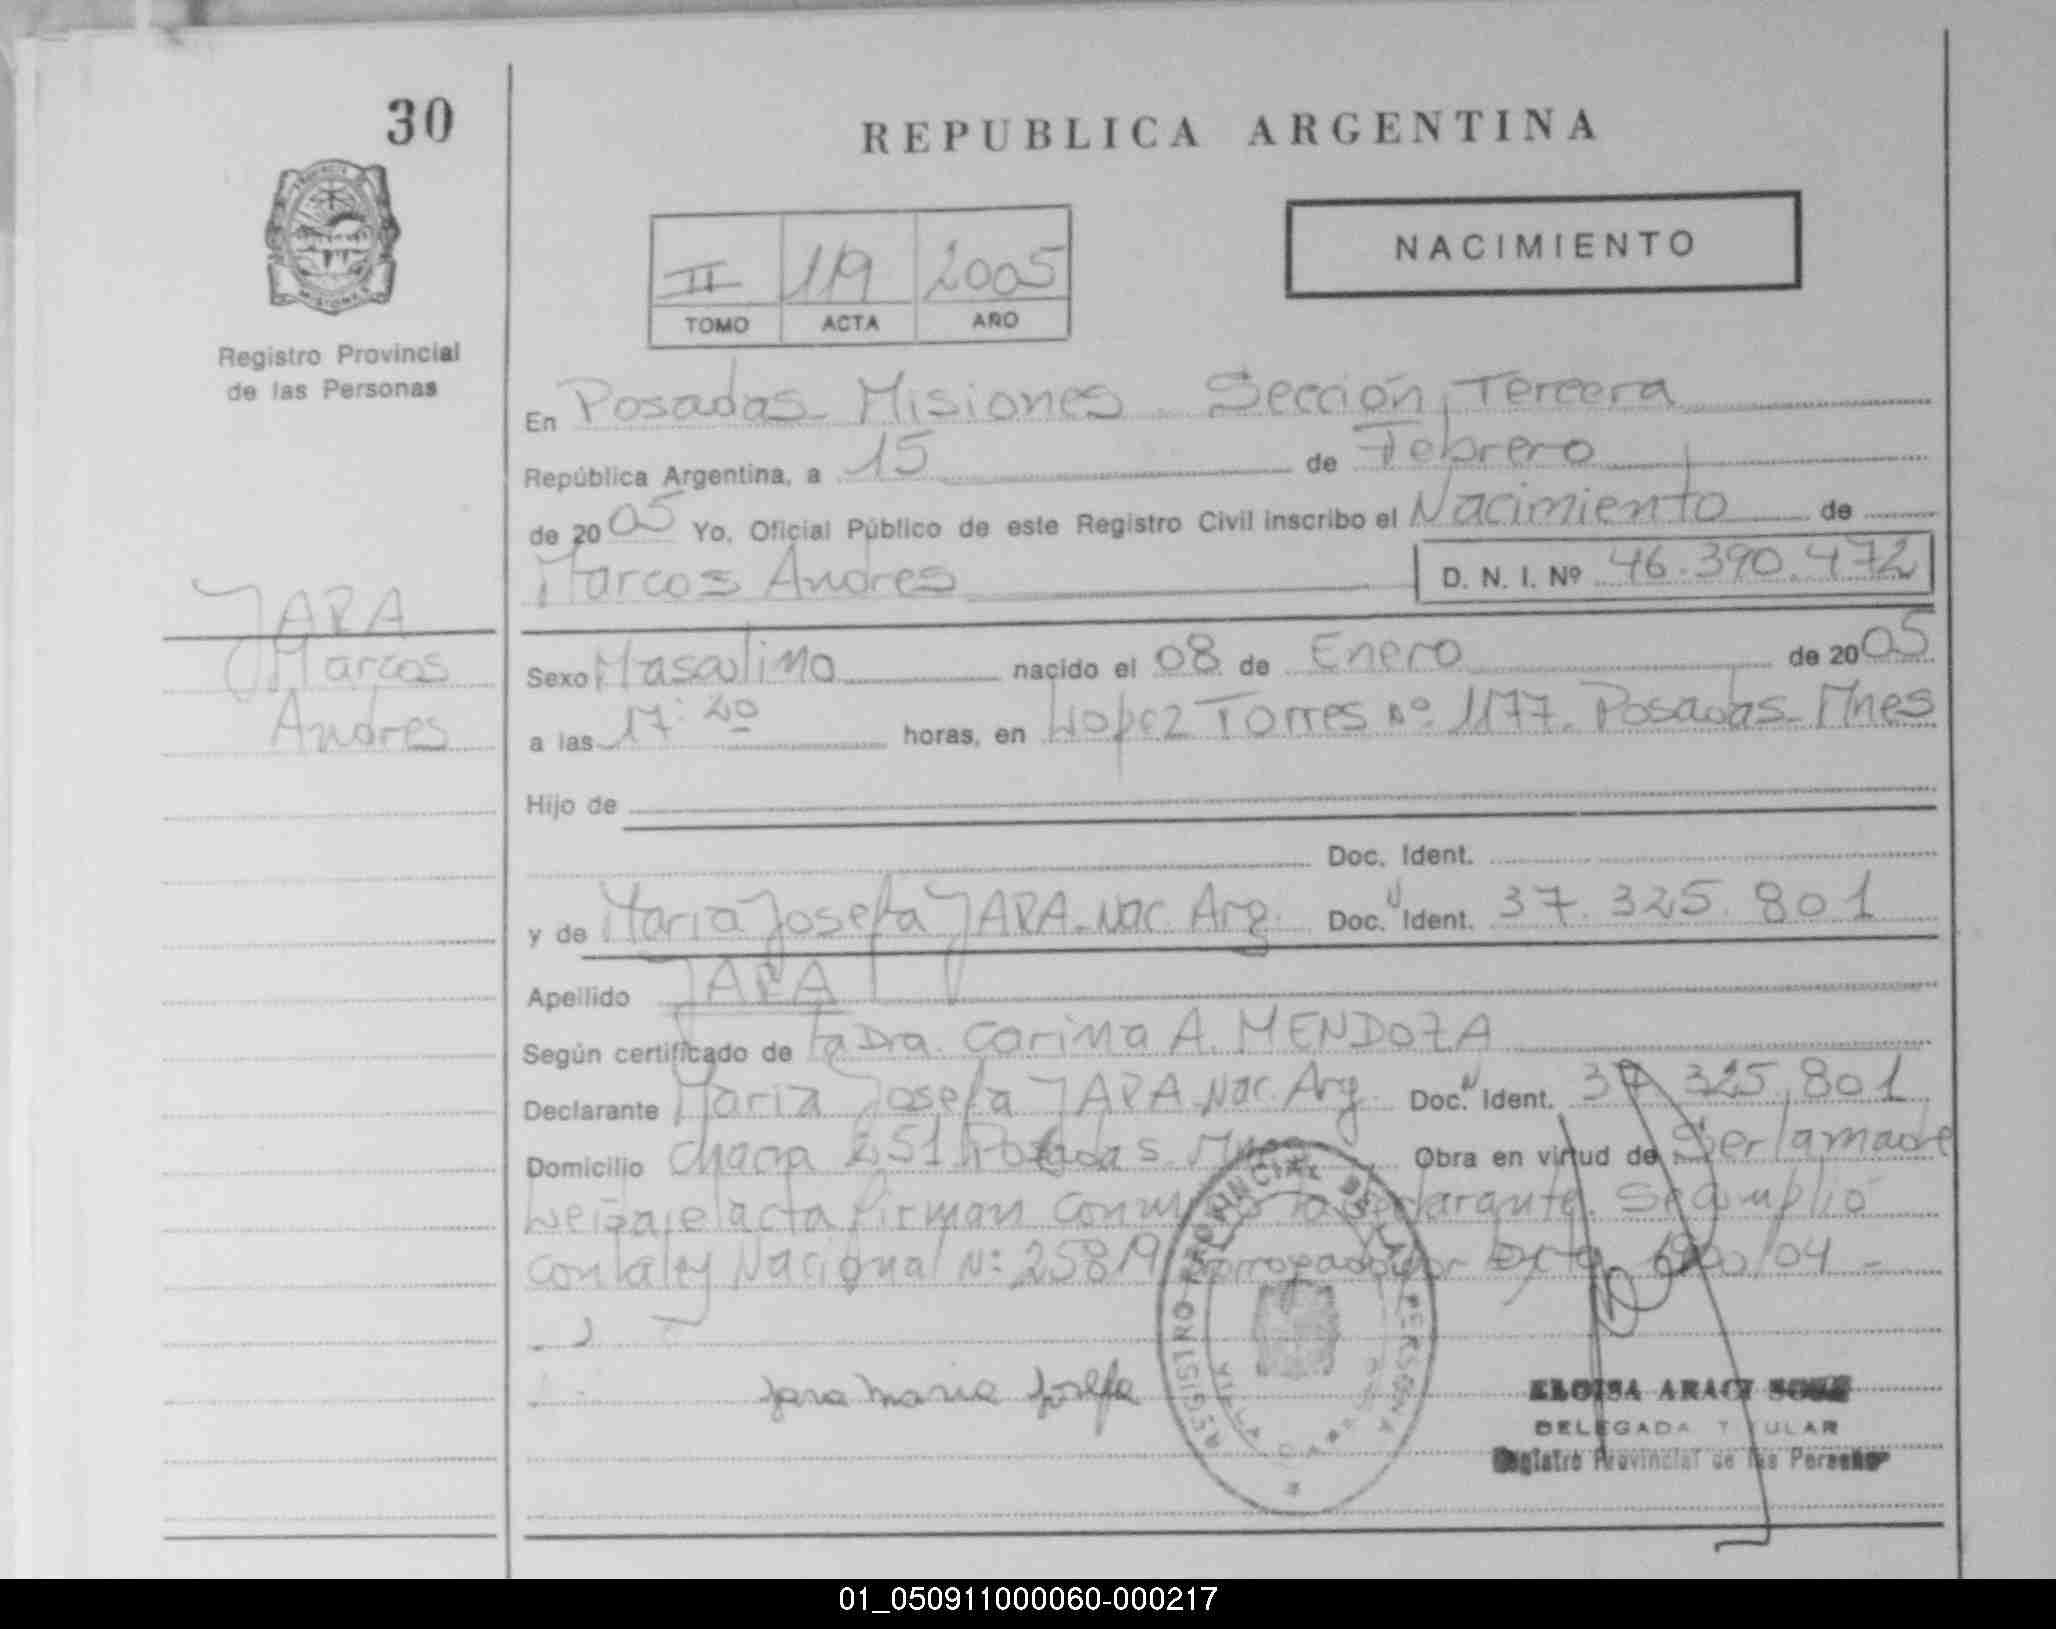 30
REPUBLICA ARGENTINA
NACIMIENTO
II 119 2005
TOMO ACTA AÑO
MISIONES
Registro Provincial
de las Personas
En Posadas Misiones Sección Tercera
República Argentina, a 15 de Febrero
de 2005 Yo, Oficial Público de este Registro Civil inscribo el Nacimiento de
Marcos Andres D. N. I. Nº 46.390.472
JARA
Marcos
Andres
Sexo Masculino nacido el 08 de Enero de 2005
a las 17:20 horas, en Lopez Torres Nº 1177. Posadas-Mnes
Hijo de
Doc. Ident.
y de Maria Josefa JARA-Nac. Arg. Doc. Ident. 37.325.801
Apellido JARA
Según certificado de la Dra. Carina A. MENDOZA
Declarante Maria Josefa JARA-Nac. Arg. Doc. Ident. 37 325.801
Domicilio Chacra 251 Posadas Mnes Obra en virtud de Ser la madre
Leída el acta firman conmigo la declarante. Se cumplió
con la ley Nacional Nº 25819 prorrogado por 1900/04 -
Jara Maria Josefa
REGISTRO PROVINCIAL DE LAS PERSONAS
VILLA CABELLO
ELOISA ARACY
DELEGADA TITULAR
Registro Provincial de las Personas
01_050911000060-000217